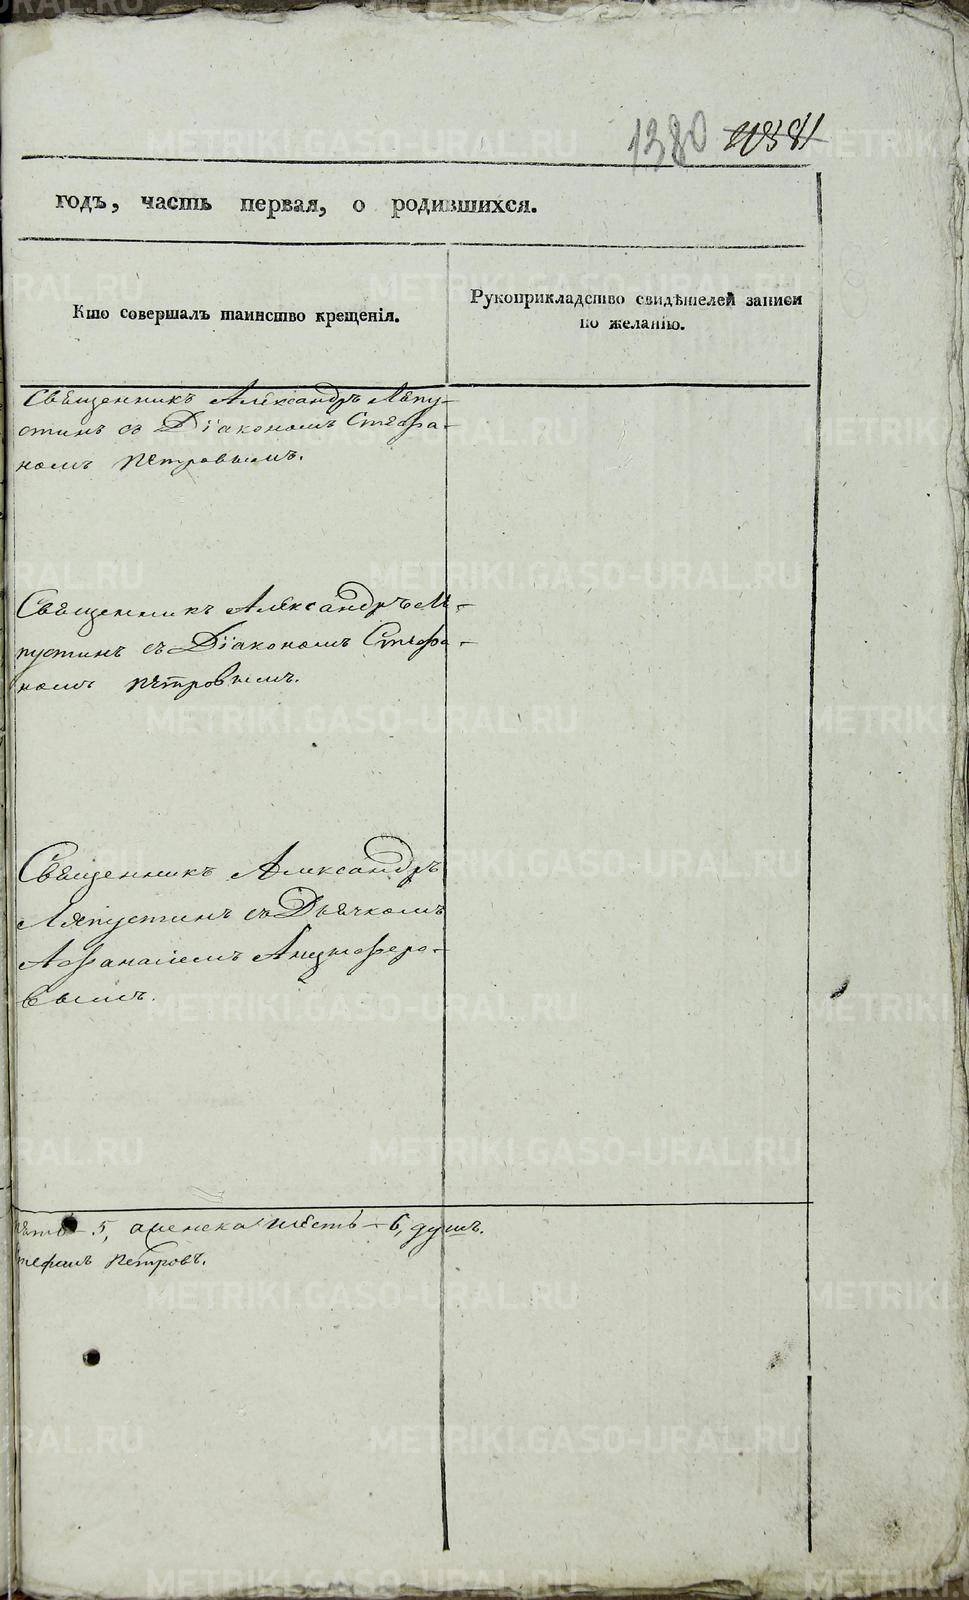 1380
годъ, часть первая, о родившихся.
Кто совершалъ таинство крещенія.
Рукоприкладство свидѣтелей записи
по желанію.
Священникъ Александръ Ляпу-
стинъ съ Діакономъ Стефа-
номъ Петровымъ.
Священникъ Александръ Ля-
пустинъ съ Діакономъ Стефа-
номъ Петровымъ.
Священникъ Александръ
Ляпустинъ съ Дьячкомъ
Афанасіемъ
вымъ.
5, а женска шесть – 6, душъ.
Петровъ.
METRIKI.GASO-URAL.RU